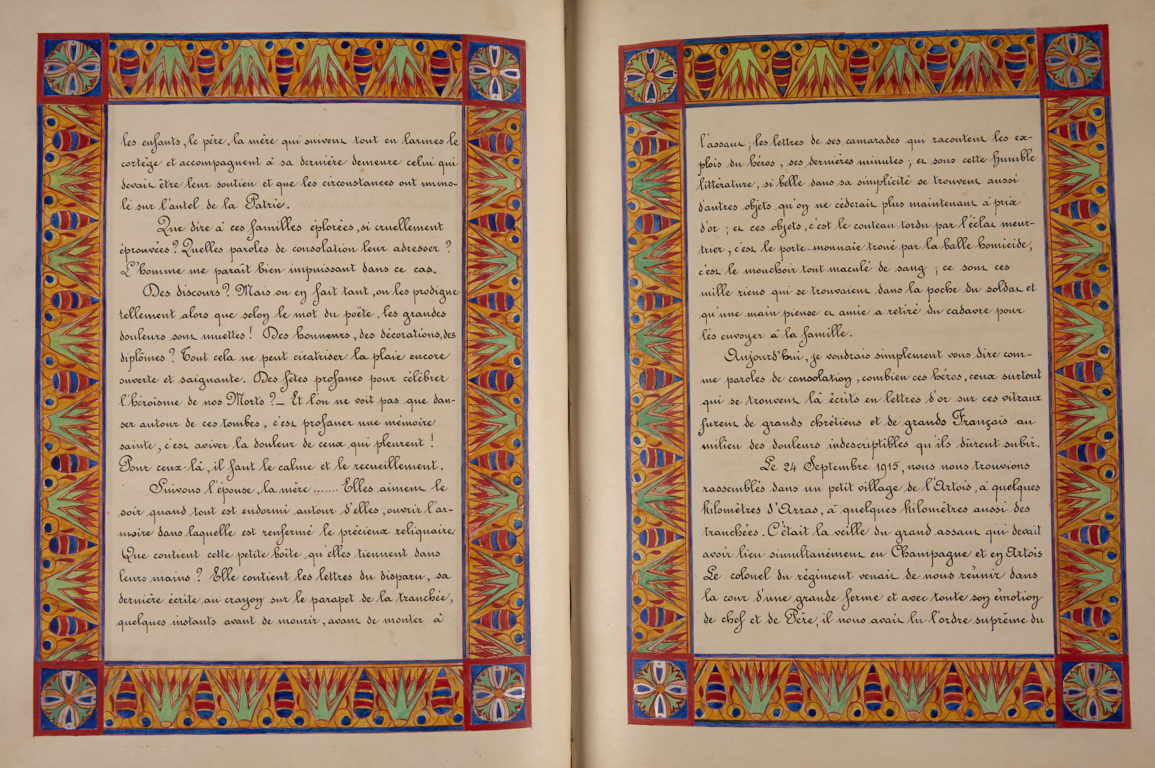 les enfants, le père, la mère qui suivent tout en larmes le
cortège et accompagnent à sa dernière demeure celui qui
devait être leur soutien et que les circonstances ont immo-
lé sur l'autel de la Patrie.
Que dire à ces familles éplorées, si cruellement
éprouvées ? Quelles paroles de consolation leur adresser ?
L'homme me paraît bien impuissant dans ce cas.
Des discours ? Mais on en fait tant, on les prodigue
tellement alors que selon le mot du poète, les grandes
douleurs sont muettes ! Des honneurs, des décorations, des
diplômes ? Tout cela ne peut cicatriser la plaie encore
ouverte et saignante. Des fêtes profanes pour célébrer
l'héroïsme de nos Morts ? _ Et l'on ne voit pas que dan-
ser autour de ces tombes, c'est profaner une mémoire
sainte, c'est aviver la douleur de ceux qui pleurent !
Pour ceux-là, il faut le calme et le recueillement.
Suivons l'épouse, la mère ....... Elles aiment le
soir quand tout est endormi autour d'elles, ouvrir l'ar-
moire dans laquelle est renfermé le précieux reliquaire
Que contient cette petite boîte qu'elles tiennent dans
leurs mains ? Elle contient les lettres du disparu, sa
dernière écrite au crayon sur le parapet de la tranchée,
quelques instants avant de mourir, avant de monter à
l'assaut ; les lettres de ses camarades qui racontent les ex-
plois du héros, ses dernières minutes ; et sous cette humble
littérature, si belle dans sa simplicité se trouvent aussi
d'autres objets qu'on ne céderait plus maintenant à prix
d'or ; et ces objets, c'est le couteau tordu par l'éclat meur-
trier, c'est le porte-monnaie troué par la balle homicide,
c'est le mouchoir tout maculé de sang ; ce sont ces
mille riens qui se trouvaient dans la poche du soldat et
qu'une main pieuse et amie a retiré du cadavre pour
les envoyer à la famille.
Aujourd'hui, je voudrais simplement vous dire com-
me paroles de consolation, combien ces héros, ceux surtout
qui se trouvent là écrits en lettres d'or sur ces vitraux
furent de grands chrétiens et de grands Français au
milieu des douleurs indescriptibles qu'ils dûrent subir.
Le 24 Septembre 1915, nous nous trouvions
rassemblés dans un petit village de l'Artois, à quelques
kilomètres d'Arras, à quelques kilomètres aussi des
tranchées. C'était la veille du grand assaut qui devait
avoir lieu simultanément en Champagne et en Artois
Le colonel du régiment venait de nous réunir dans
la cour d'une grande ferme et avec toute son émotion
de chef et de Père, il nous avait lu l'ordre suprême du